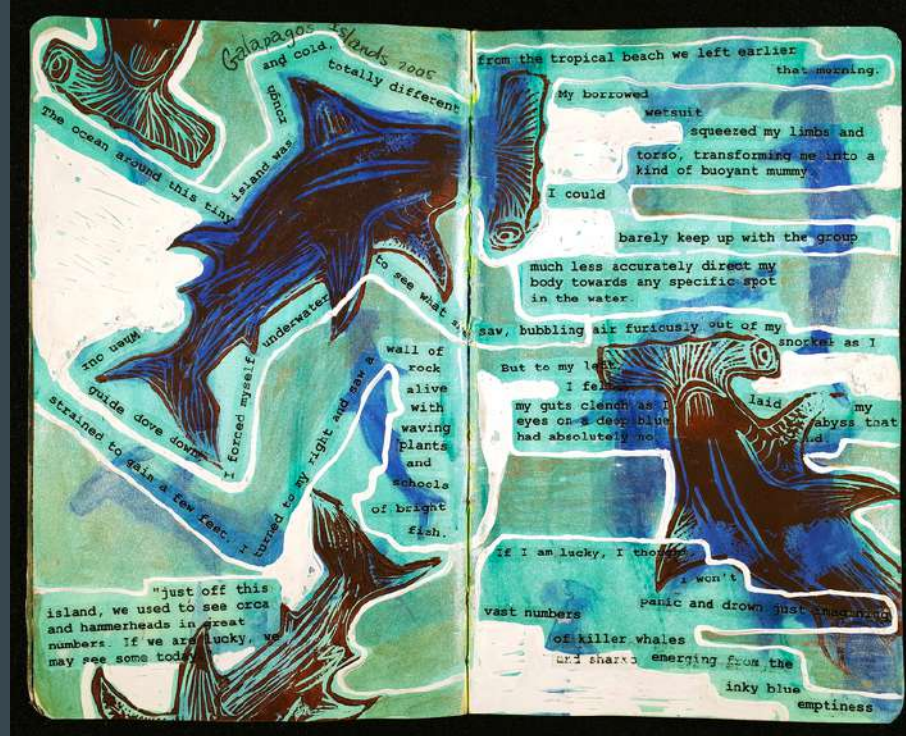 Galapagos Islands 2005
The ocean around this tiny
island was
rough
and cold,
totally different
from the tropical beach we left earlier
that morning.
My borrowed
wetsuit
squeezed my limbs and
torso, transforming me into a
kind of buoyant mummy.
I could
barely keep up with the group
much less accurately direct my
body towards any specific spot
in the water.
When our
guide dove down
I forced myself
underwater
to see what
saw, bubbling air furiously out of my
snorkel as I
strained to gain a few feet. I
turned to my right and saw a
wall of
rock
alive
with
waving
plants
and
schools
of bright
fish.
But to my left,
I felt
my guts clench as I
laid
my
eyes on a deep blue
abyss that
had absolutely no
"just off this
island, we used to see orca
and hammerheads in great
numbers. If we are lucky, we
may see some today
If I am lucky, I thought,
I won't
panic and drown just imagining
vast numbers
of killer whales
and sharks emerging from the
inky blue
emptiness